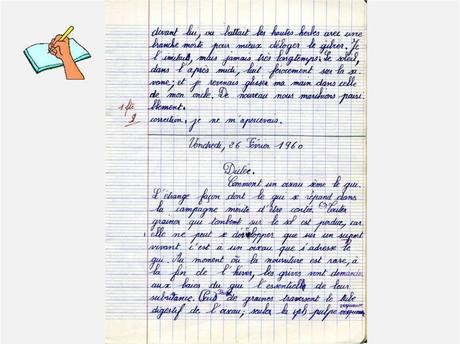 devant lui, ou battait les hautes herbes avec une
branche morte pour mieux déloger le gibier. Je
l'imitais, mais jamais très longtemps. Le soleil,
dans l'après midi, luit férocement sur la sa-
vane; et je revenais glisser ma main dans celle
de mon oncle. De nouveau nous marchions paisi-
blement.
1 fte
correction, je ne m'apercevais.
Vendredi, 26 Février 1960
Dictée.
Comment un oiseau sème le gui.
L'étrange façon dont le gui se répand dans
la campagne mérite d'être contée. Toutes
graines qui tombent sur le sol est perdue, car
elle ne peut se développer que sur un support
vivant c'est à un oiseau que s'adresse le
gui. Au moment où la nourriture est rare, à
la fin de l'hiver, les grives vont demander
aux baies du gui l'essentiel de leur
subsistance. de graines traversent le tube
digestif de l'oiseau; seule la pulpe